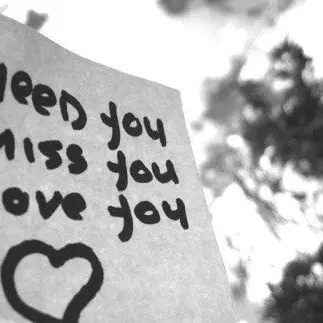 NeeD you
miss you
ove you